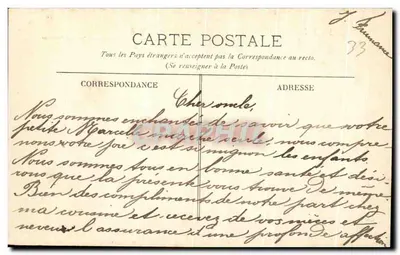 J. Humana
33
CARTE POSTALE
Tous les Pays étrangers n'acceptent pas la Correspondance au recto.
(Se renseigner à la Poste)
CORRESPONDANCE
ADRESSE
Cher oncle,
Nous sommes enchantés de savoir que notre
petite Marcelle seule, nous compre
nons votre joie c'est si mignon les enfants.
Nous sommes tous en bonne santé et dési
rons que la présente vous trouve de même
Bien des compliments de notre part chez
ma cousine et recevez de vos nièces et
neveux l'assurance d'une profonde affection